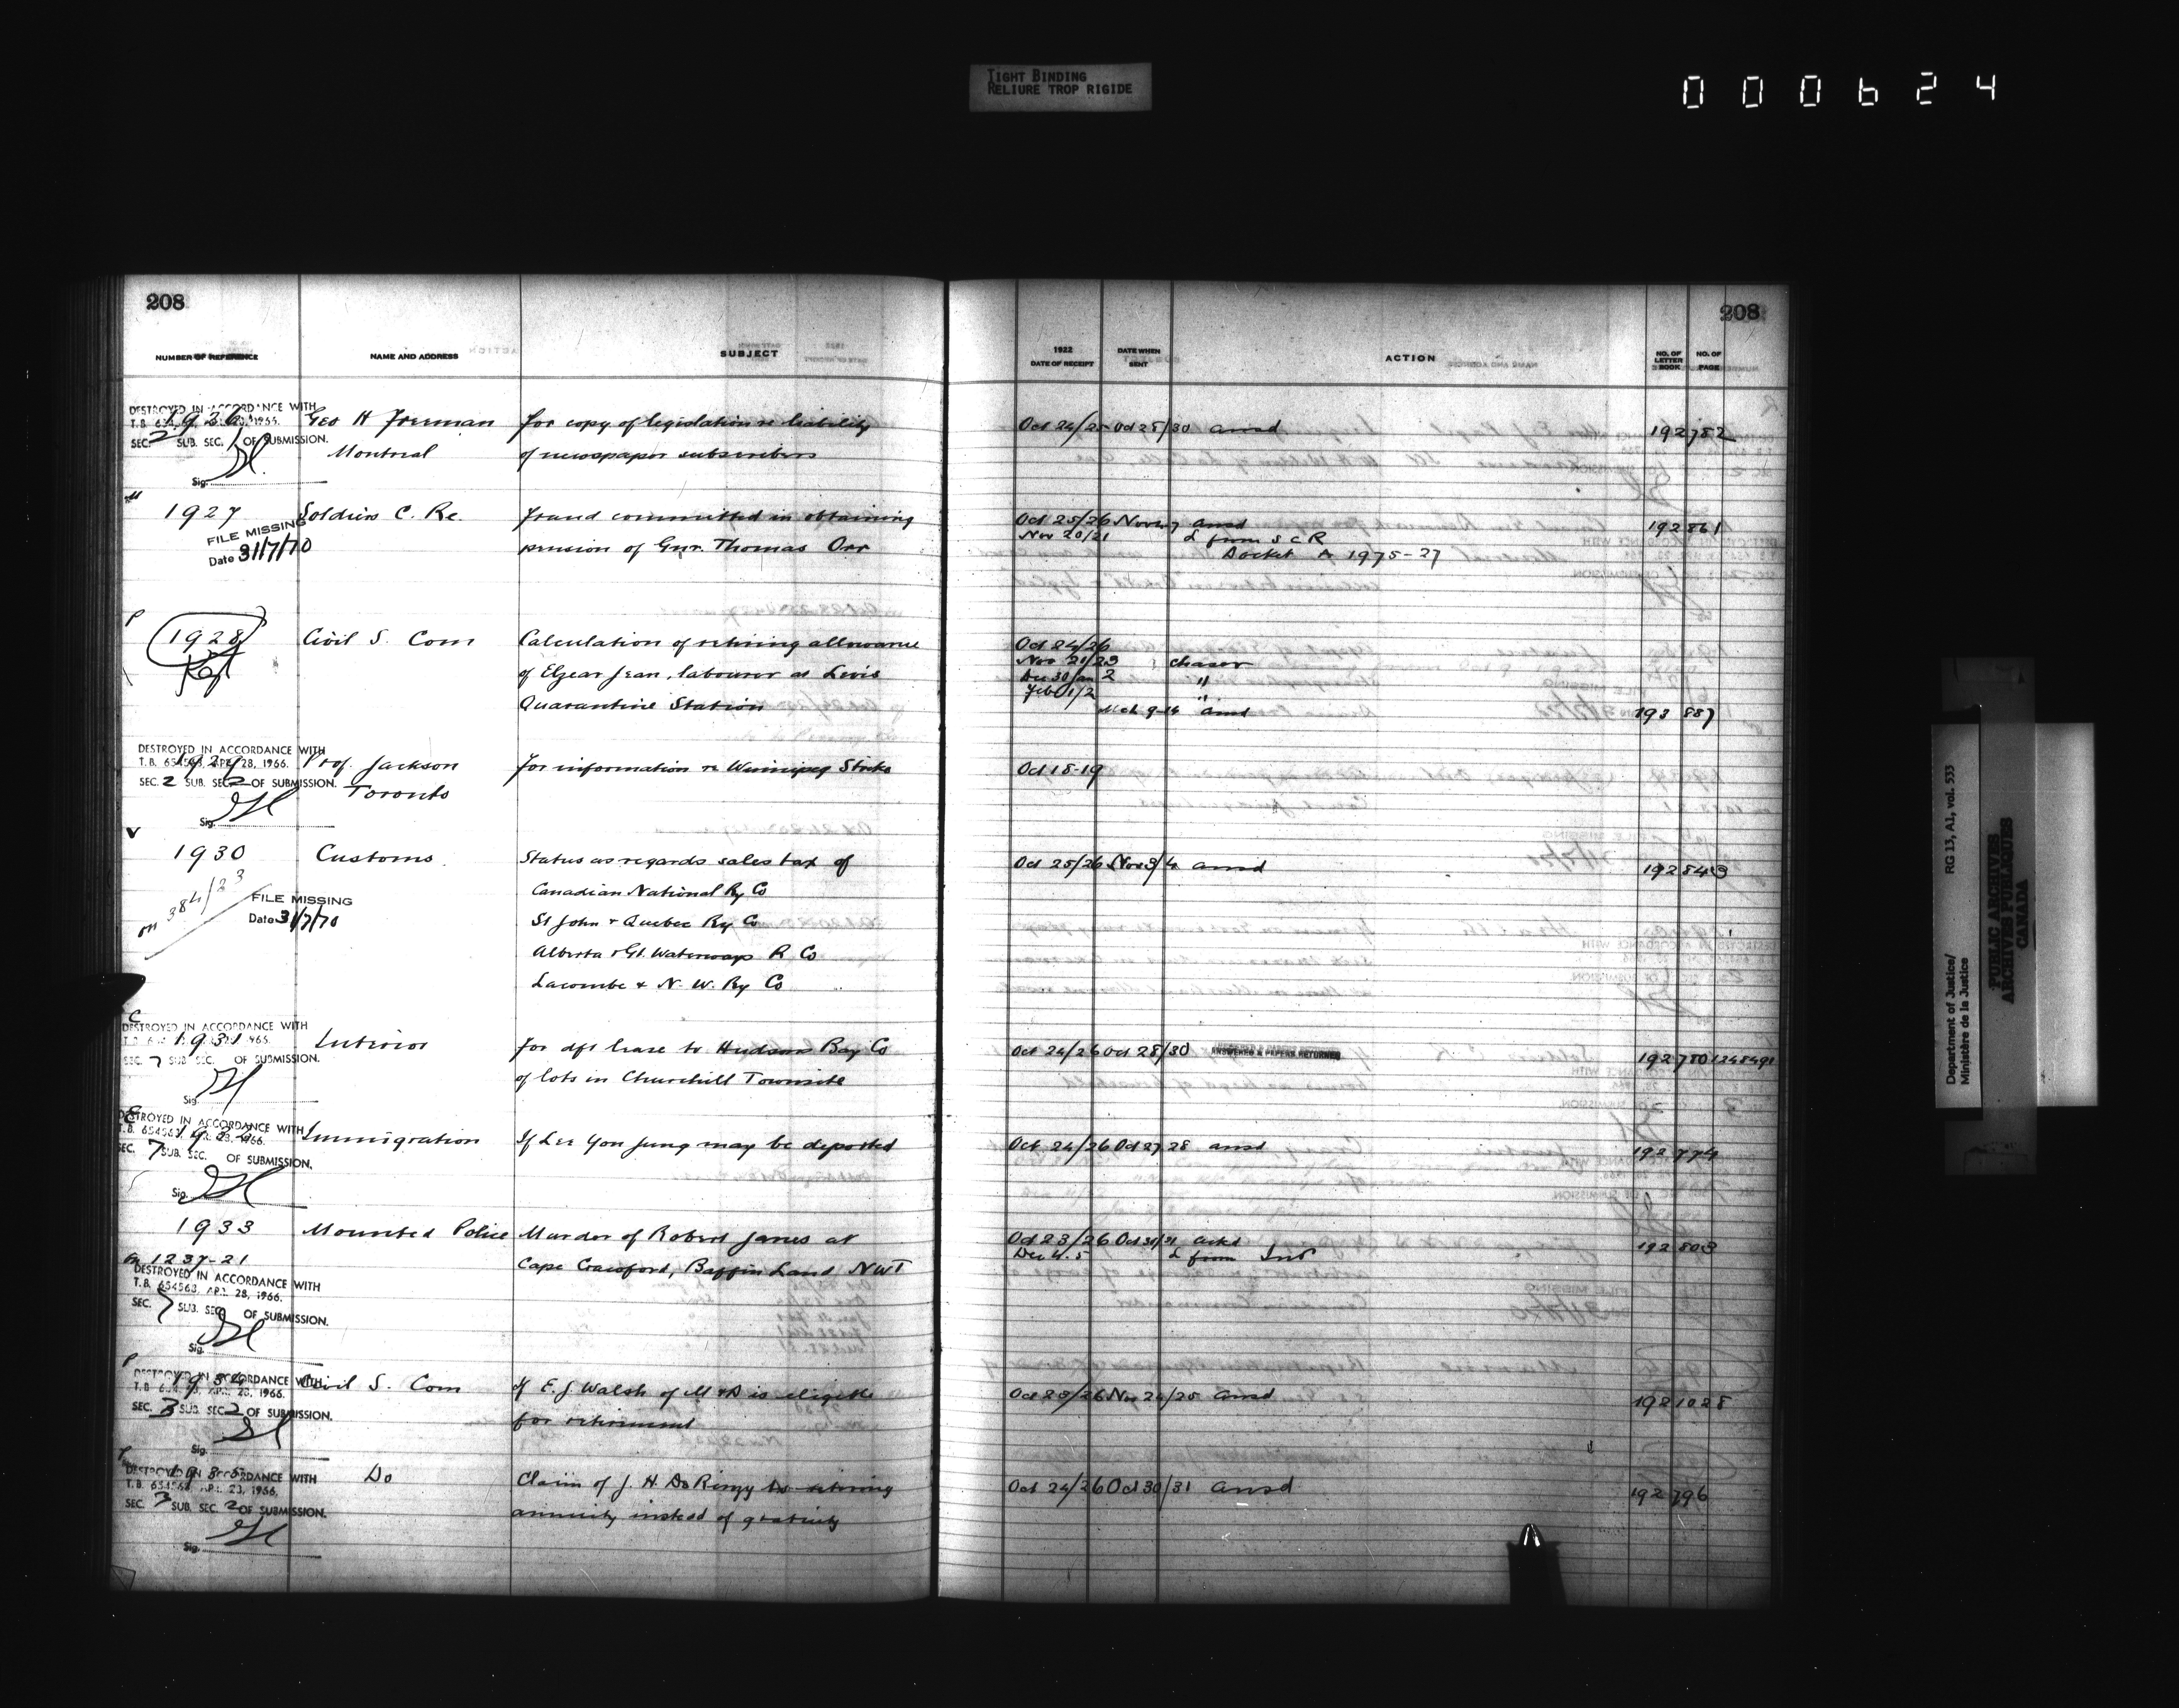 TIGHT BINDING
RELIURE TROP RIGIDE
000624
208
208
NUMBER OF REFERENCE NAME AND ADDRESS SUBJECT 1922 DATE OF RECEIPT DATE WHEN SENT ACTION NO. OF LETTER BOOK NO. OF PAGE
DESTROYED IN ACCORDANCE WITH
1926 Geo H Freeman for copy of legislation re liability Oct 24/25 Oct 28/30 ansd 192 782
SEC. 2 SUB. SEC. 1 OF SUBMISSION.
Montreal of newspaper subscribers
Sig.
1927 Soldiers C. Re. Fraud committed in obtaining Oct 25/26 Nov 6/7 ansd 192 861
FILE MISSING
Date 31/7/70
pension of Gnr. Thomas Orr Nov 20/21 L from S C R
Docket A 1975-27
P
1928 Civil S. Com Calculation of retiring allowance Oct 24/26
of Elzear Jean, labourer at Levis Nov 21/23 chaser
Dec 30/Jan 2 "
Quarantine Station Feb 1/2 "
Mch 9-14 ansd 193 887
DESTROYED IN ACCORDANCE WITH
T.B. 654563, APR. 28, 1966.
1929 Prof. Jackson for information re Winnipeg Strike Oct 18-19
SEC. 2 SUB. SEC. 2 OF SUBMISSION.
Toronto
Sig.
V
1930 Customs Status as regards sales tax of Oct 25/26 Nov 3/4 ansd 192 843
on 384/23
FILE MISSING
Date 31/7/70
Canadian National Ry Co
St John & Quebec Ry Co
Alberta & Gt. Waterways R Co
Lacombe & N. W. Ry Co
C
DESTROYED IN ACCORDANCE WITH
1931 Interior for dft lease to Hudson Bay Co Oct 24/26 Oct 28/30 ANSWERED & PAPERS RETURNED 192 780
SEC. 7 SUB. SEC. OF SUBMISSION.
of lots in Churchill Townsite
Sig.
DESTROYED IN ACCORDANCE WITH
1932 Immigration If Lee Yon Jung may be deported Oct 24/26 Oct 27/28 ansd 192 774
SEC. 7 SUB. SEC. OF SUBMISSION.
Sig.
1933 Mounted Police Murder of Robert Janes at Oct 23/26 Oct 30/31 ackd 192 803
on 1237-21 Cape Crawford, Baffin Land NWT Dec 4. 5 L from Int
DESTROYED IN ACCORDANCE WITH
T.B. 654563, APR. 28, 1966.
SEC. 7 SUB. SEC. OF SUBMISSION.
Sig.
P
DESTROYED IN ACCORDANCE WITH
1934 Civil S. Com If E. J Walsh of M & D is eligible Oct 23/26 Nov 24/25 ansd 192 1028
SEC. 3 SUB. SEC. 2 OF SUBMISSION.
for retirement
Sig.
DESTROYED IN ACCORDANCE WITH
1935 Do Claim of J. H. to retiring Oct 24/26 Oct 30/31 ansd 192 796
SEC. 3 SUB. SEC. 2 OF SUBMISSION.
annuity instead of gratuity
Sig.
Department of Justice/
Ministère de la Justice
RG 13, A1, vol. 533
PUBLIC ARCHIVES
ARCHIVES PUBLIQUES
CANADA